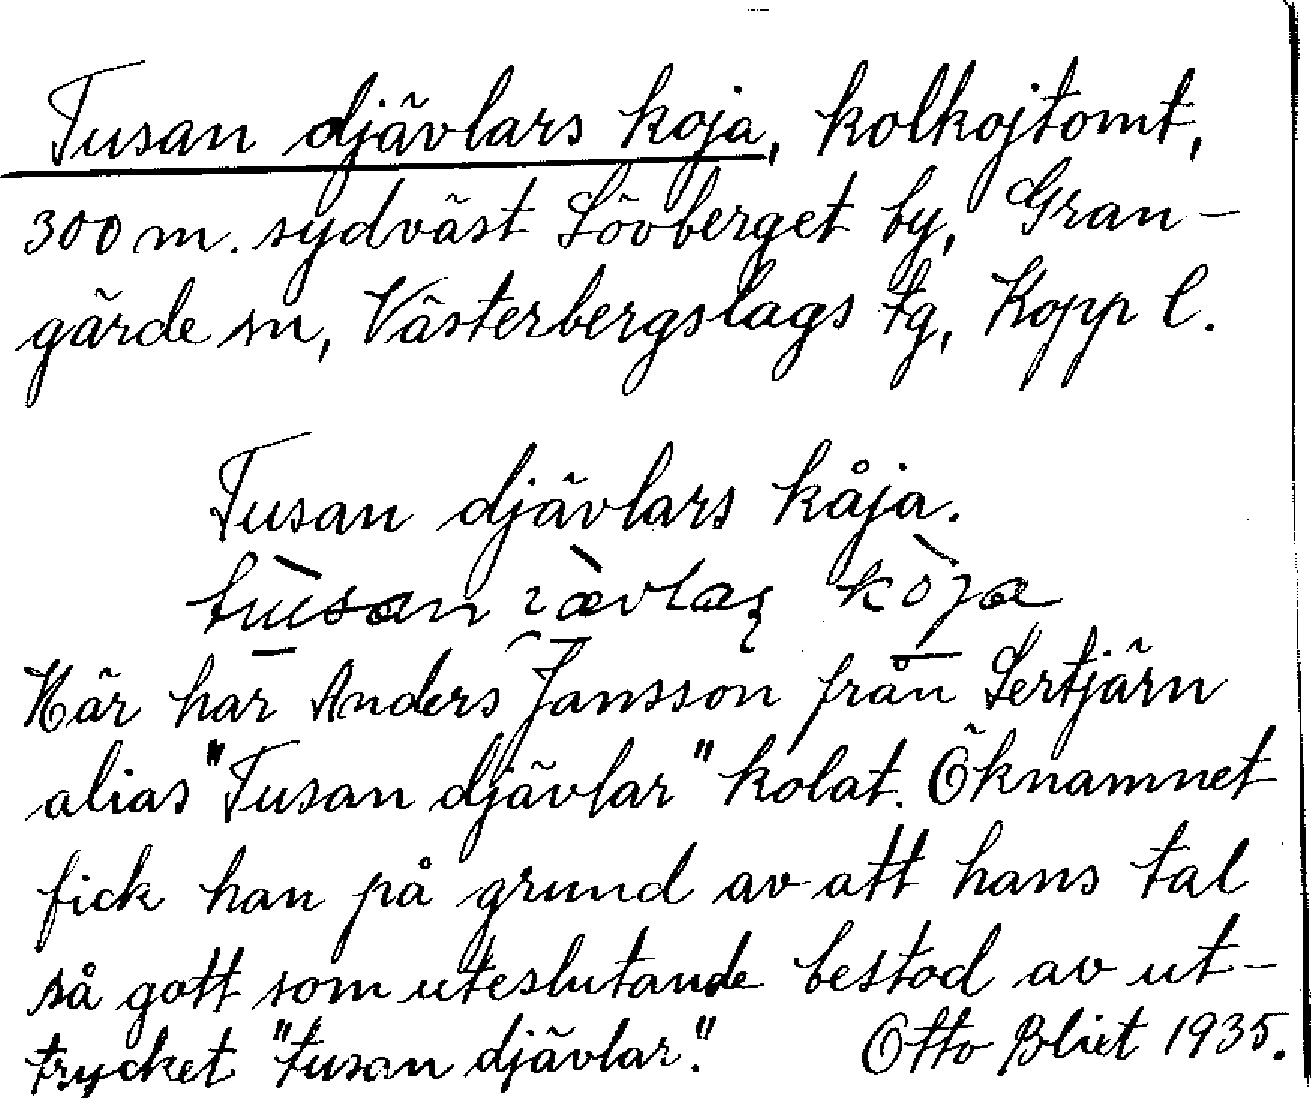 Tusan djävlars koja, kolkojtomt,
300 m. sydväst Lövberget by, Gran-
gärde sn, Västerbergslags tg, Kopp l.
Tusan djävlars kåja.
Här har Anders Jansson från Lertjärn
alias "Tusan djävlar" kolat. Öknamnet
fick han på grund av att hans tal
så gott som uteslutande bestod av ut-
trycket "tusan djävlar". Otto Blixt 1935.